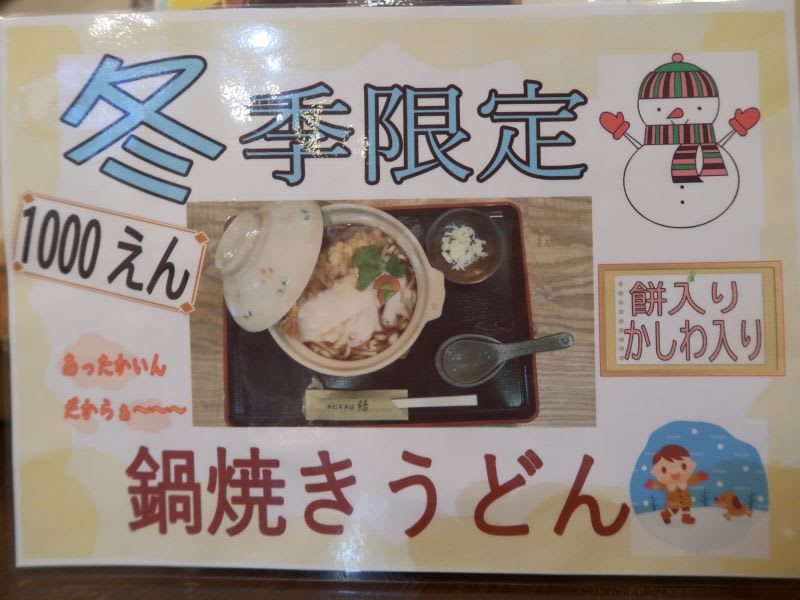 冬季限定
1000えん
餅入り
かしわ入り
あったかいん
だからぁ〜〜〜
鍋焼きうどん